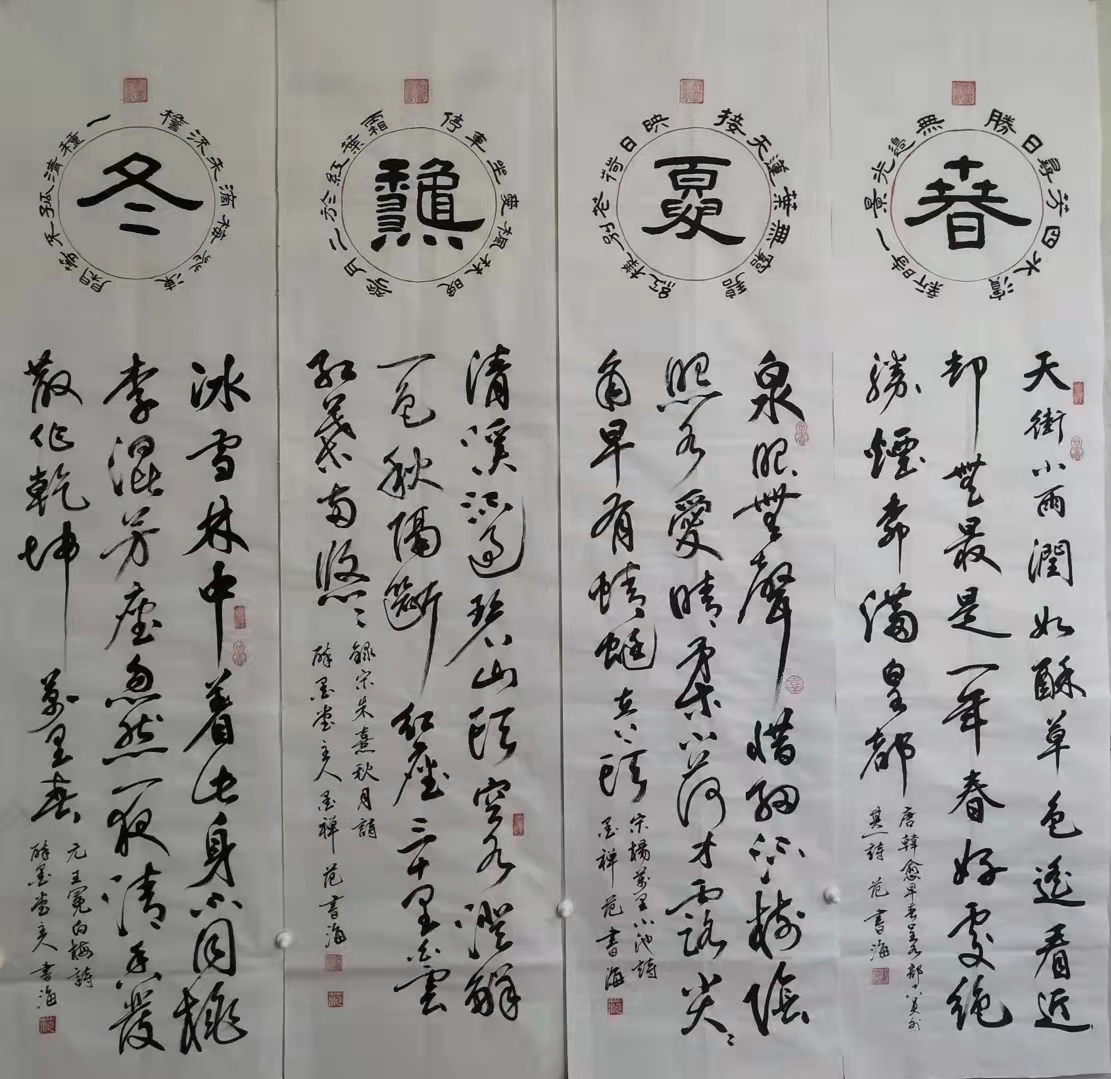 春
勝日尋芳四水濱
無邊光景一時新
天街小雨潤如酥草色遙看近
却無最是一年春好處絕
勝煙柳滿皇都
唐韓愈早春呈水部員外
其一詩 范書海
夏
接天蓮葉無窮碧
映日荷花別樣紅
泉眼無聲惜細流樹陰
照水愛晴柔小荷才露尖〻
角早有蜻蜓立上頭
宋楊萬里小池詩
墨禪范書海
龝
停車坐愛楓林晚
霜葉紅於二月花
清溪流過碧山頭空水澄鮮
一色秋隔斷紅塵三十里白雲
紅葉兩悠〻
錄宋朱熹秋月詩
醉墨堂主人墨禪范書海
冬
檐流未滴梅花凍
一種清孤不等閑
冰雪林中著此身不同桃
李混芳塵忽然一夜清香發
散作乾坤萬里春
元王冕白梅詩
醉墨堂主人書海